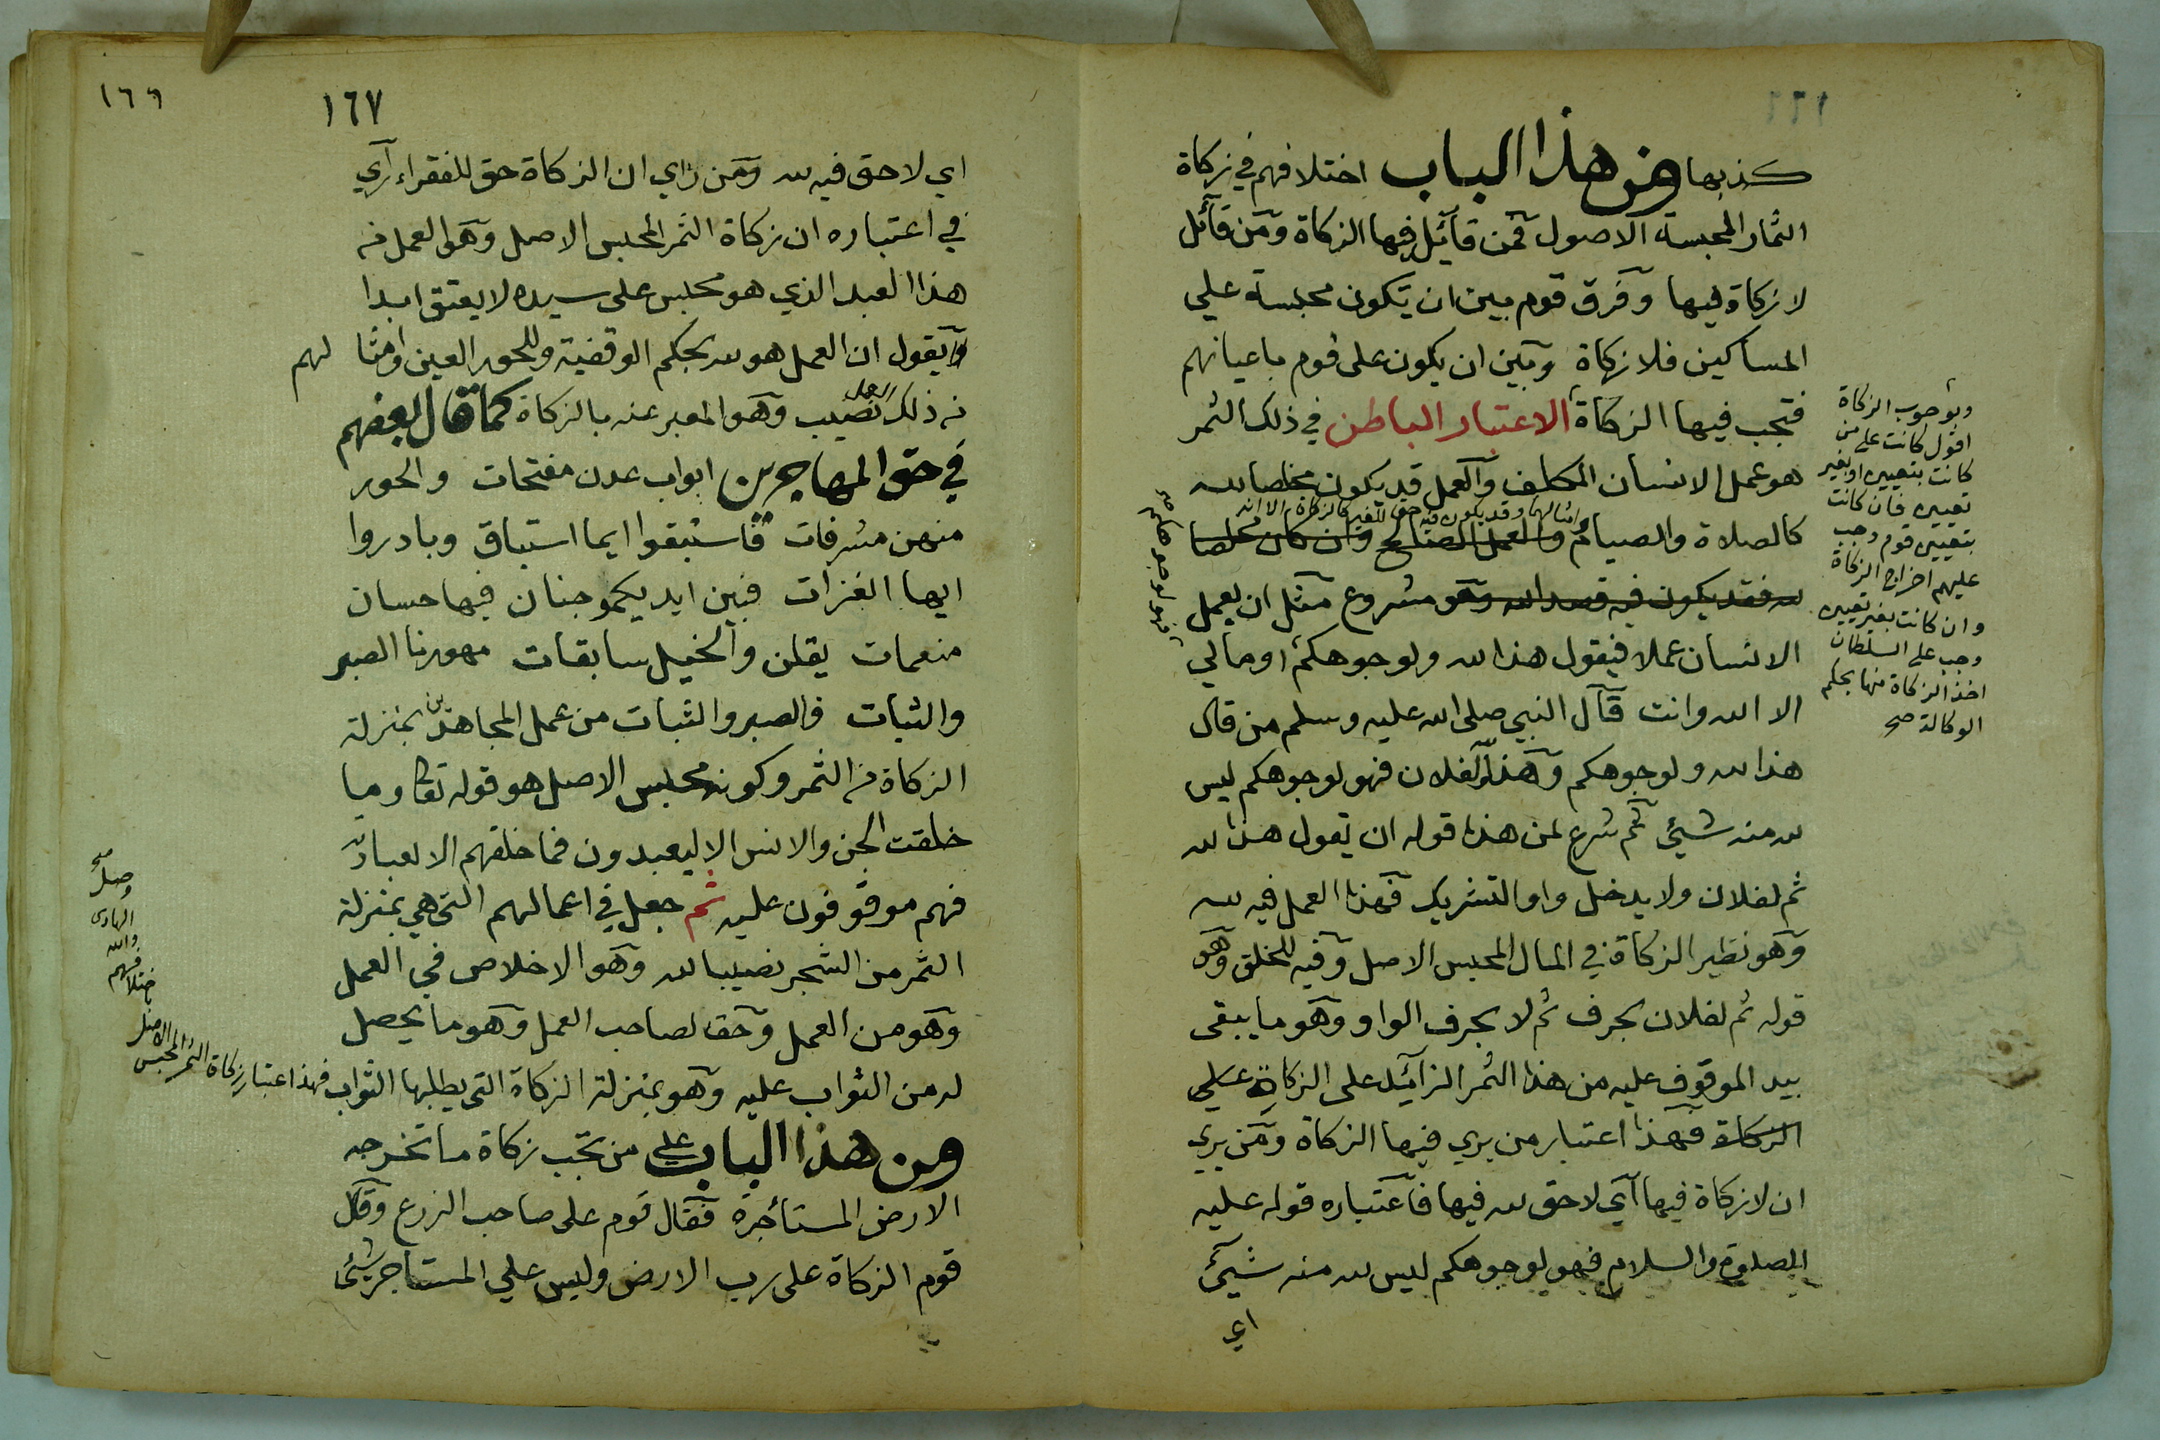 كذبها ومن هذا الباب اختلافهم في زكاة
الثمار المحبسة الاصول فمن قائل فيها الزكاة ومن قائل
لا زكاة فيها وفرق قوم بين ان تكون محبسة علي
المساكين فلا زكاة وبين ان يكون على قوم باعيانهم
فتجب فيها الزكاة الاعتبار الباطن في ذلك الثمر
هو عمل الانسان المكلف والعمل قد يكون مخلصا لله
وامثالهما وقد يكون فيه حق للغير كالزكاة الا انه
كالصلاة والصيام والعمل الصالح وان كان مخلصا
لله فقد يكون فيه قصد الله وهو مشروع مثل ان يعمل
الانسان عملا فيقول هذا لله ولوجوهكم او مالي
الا الله وانت قال النبي صلى الله عليه وسلم من قال
هذا لله ولوجوهكم وهذا لفلان فهو لوجوهكم ليس
لله منه شيئ ثم شرع لمن هذا قوله ان يقول هذا لله
ثم لفلان ولا يدخل واو التشريك فهذا العمل فيه لله
وهو نظير الزكاة في المال المحبس الاصل وفيه للخلق وهو
قوله ثم لفلان بحرف ثم لا بحرف الواو وهو ما يبقى
بيد الموقوف عليه من هذا الثمر الزائد على الزكاة علي
الزكاة فهذا اعتبار من يري فيها الزكاة ومن يري
ان لا زكاة فيها اي لا حق لله فيها فاعتباره قوله عليه
الصلوة والسلام فهو لوجوهكم ليس لله منه شيئ
اي
وبوجوب الزكاة
اقول كانت على من
كانت بتعيين او بغير
تعيين فان كانت
بتعيين قوم وجب
عليهم اخراج الزكاة
وان كانت بغير تعيين
وجب على السلطان
اخذ الزكاة منها بحكم
الوكالة صح
١٦٦
١٦٧
اي لا حق فيه لله ومن راي ان الزكاة حق للفقراء راي
في اعتباره ان زكاة الثمر المحبس الاصل وهو العمل من
هذا العبد الذي هو محبس على سيده لا يعتق ابدا
ويقول ان العمل هو لله بحكم الوقفية وللحور العين وامثالهم
من ذلك العمل نصيب وهو المعبر عنه بالزكاة كما قال بعضهم
في حق المهاجرين ابواب عدن مفتحات والحور
منهن مشرفات فاستبقوا ايما استباق وبادروا
ايها الغزات فبين ايديكمو جنان فيها حسان
منعمات يقلن والخيل سابقات مهورنا الصبر
والثبات فالصبر والثبات من عمل المجاهدين بمنزلة
الزكاة من الثمر وكونه محبس الاصل هو قوله تعالى وما
خلقت الجن والانس الا ليعبدون فما خلقهم الا لعبادته
فهم موقوفون عليه ثم جعل في اعمالهم التي هي بمنزلة
الثمر من الشجر نصيبا لله وهو الاخلاص في العمل
وهو من العمل وحق لصاحب العمل وهو ما يحصل
له من الثواب عليه وهو بمنزلة الزكاة التي يطلبها الثواب فهذا اعتبار زكاة الثمر المحبس الاصل
باختلافهم
والله
الهادي
ومن هذا الباب على من تجب زكاة ما تخرجه
الارض المستأجرة فقال قوم على صاحب الزرع وقال
قوم الزكاة على رب الارض وليس علي المستاجر شيئ